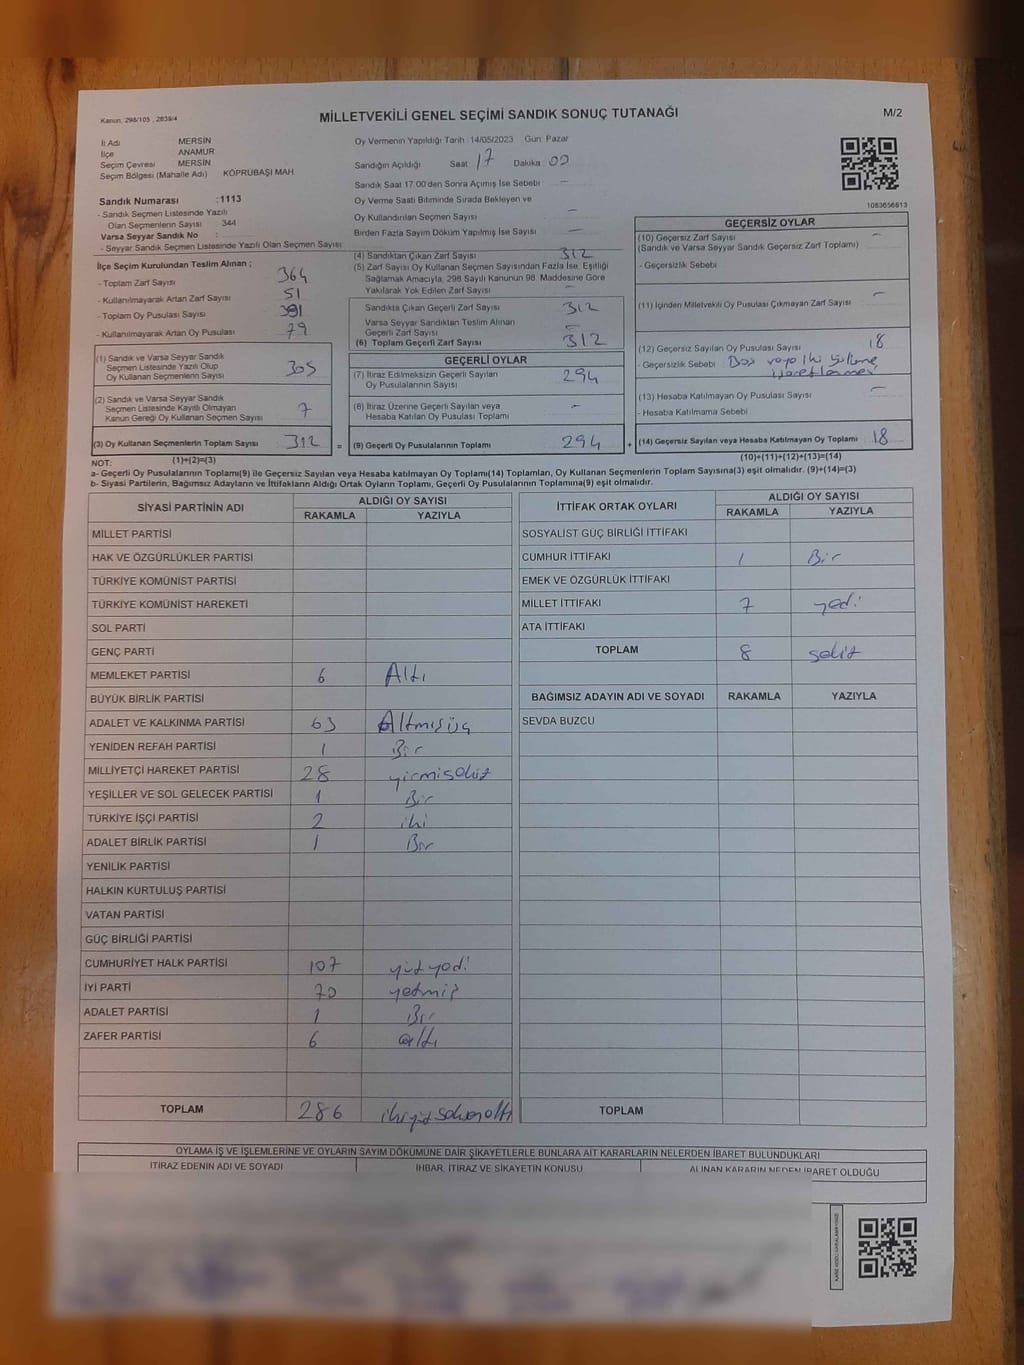 Kanun, 298/105 , 2839/4
MİLLETVEKİLİ GENEL SEÇİMİ SANDIK SONUÇ TUTANAĞI
M/2
İl Adı MERSİN
İlçe ANAMUR
Seçim Çevresi MERSİN
Seçim Bölgesi (Mahalle Adı) KÖPRÜBAŞI MAH
Sandık Numarası :1113
- Sandık Seçmen Listesinde Yazılı
Olan Seçmenlerin Sayısı : 344
Varsa Seyyar Sandık No :
- Seyyar Sandık Seçmen Listesinde Yazılı Olan Seçmen Sayısı :
Oy Vermenin Yapıldığı Tarih :14/05/2023 Gün: Pazar
Sandığın Açıldığı Saat 17 Dakika: 00
Sandık Saat 17:00'den Sonra Açımış İse Sebebi —
Oy Verme Saati Bitiminde Sırada Bekleyen ve
Oy Kullandırılan Seçmen Sayısı —
Birden Fazla Sayım Döküm Yapılmış İse Sayısı —
1083656813
İlçe Seçim Kurulundan Teslim Alınan ;
- Toplam Zarf Sayısı 364
- Kullanılmayarak Artan Zarf Sayısı 51
- Toplam Oy Pusulası Sayısı 391
- Kullanılmayarak Artan Oy Pusulası 79
(1) Sandık ve Varsa Seyyar Sandık
Seçmen Listesinde Yazılı Olup
Oy Kullanan Seçmenlerin Sayısı 305
(2) Sandık ve Varsa Seyyar Sandık
Seçmen Listesinde Kayıtlı Olmayan
Kanun Gereği Oy Kullanan Seçmen Sayısı 7
(3) Oy Kullanan Seçmenlerin Toplam Sayısı 312 =
(1)+(2)=(3)
(4) Sandıktan Çıkan Zarf Sayısı 312
(5) Zarf Sayısı Oy Kullanan Seçmen Sayısından Fazla İse, Eşitliği
Sağlamak Amacıyla, 298 Sayılı Kanunun 98. Maddesine Göre
Yakılarak Yok Edilen Zarf Sayısı —
Sandıkta Çıkan Geçerli Zarf Sayısı 312
Varsa Seyyar Sandıktan Teslim Alınan
Geçerli Zarf Sayısı —
(6) Toplam Geçerli Zarf Sayısı 312
GEÇERLİ OYLAR
(7) İtiraz Edilmeksizin Geçerli Sayılan
Oy Pusulalarının Sayısı 294
(8) İtiraz Üzerine Geçerli Sayılan veya
Hesaba Katılan Oy Pusulası Toplamı -
(9) Geçerli Oy Pusulalarının Toplamı 294 +
GEÇERSİZ OYLAR
(10) Geçersiz Zarf Sayısı —
(Sandık ve Varsa Seyyar Sandık Geçersiz Zarf Toplamı)
- Geçersizlik Sebebi
(11) İçinden Milletvekili Oy Pusulası Çıkmayan Zarf Sayısı —
(12) Geçersiz Sayılan Oy Pusulası Sayısı 18
- Geçersizlik Sebebi Boş veya iki
(13) Hesaba Katılmayan Oy Pusulası Sayısı —
- Hesaba Katılmama Sebebi
(14) Geçersiz Sayılan veya Hesaba Katılmayan Oy Toplamı 18
(10)+(11)+(12)+(13)=(14)
NOT:
a- Geçerli Oy Pusulalarının Toplamı(9) ile Geçersiz Sayılan veya Hesaba katılmayan Oy Toplamı(14) Toplamları, Oy Kullanan Seçmenlerin Toplam Sayısına(3) eşit olmalıdır. (9)+(14)=(3)
b- Siyasi Partilerin, Bağımsız Adayların ve İttifakların Aldığı Ortak Oyların Toplamı, Geçerli Oy Pusulalarının Toplamına(9) eşit olmalıdır.
SİYASİ PARTİNİN ADI ALDIĞI OY SAYISI
RAKAMLA YAZIYLA
MİLLET PARTİSİ
HAK VE ÖZGÜRLÜKLER PARTİSİ
TÜRKİYE KOMÜNİST PARTİSİ
TÜRKİYE KOMÜNİST HAREKETİ
SOL PARTİ
GENÇ PARTİ
MEMLEKET PARTİSİ 6 Altı
BÜYÜK BİRLİK PARTİSİ
ADALET VE KALKINMA PARTİSİ 63 Altmışüç
YENİDEN REFAH PARTİSİ 1 Bir
MİLLİYETÇİ HAREKET PARTİSİ 28 yirmisekiz
YEŞİLLER VE SOL GELECEK PARTİSİ 1 Bir
TÜRKİYE İŞÇİ PARTİSİ 2 iki
ADALET BİRLİK PARTİSİ 1 Bir
YENİLİK PARTİSİ
HALKIN KURTULUŞ PARTİSİ
VATAN PARTİSİ
GÜÇ BİRLİĞİ PARTİSİ
CUMHURİYET HALK PARTİSİ 107 yüzyedi
İYİ PARTİ 70 yetmiş
ADALET PARTİSİ 1 Bir
ZAFER PARTİSİ 6 altı
TOPLAM 286 ikiyüzseksenaltı
İTTİFAK ORTAK OYLARI ALDIĞI OY SAYISI
RAKAMLA YAZIYLA
SOSYALİST GÜÇ BİRLİĞİ İTTİFAKI
CUMHUR İTTİFAKI 1 Bir
EMEK VE ÖZGÜRLÜK İTTİFAKI
MİLLET İTTİFAKI 7 yedi
ATA İTTİFAKI
TOPLAM 8 sekiz
BAĞIMSIZ ADAYIN ADI VE SOYADI RAKAMLA YAZIYLA
SEVDA BUZCU
TOPLAM
OYLAMA İŞ VE İŞLEMLERİNE VE OYLARIN SAYIM DÖKÜMÜNE DAİR ŞİKAYETLERLE BUNLARA AİT KARARLARIN NELERDEN İBARET BULUNDUKLARI
İTİRAZ EDENİN ADI VE SOYADI
İHBAR, İTİRAZ VE ŞİKAYETİN KONUSU
ALINAN KARARIN NEDEN İBARET OLDUĞU